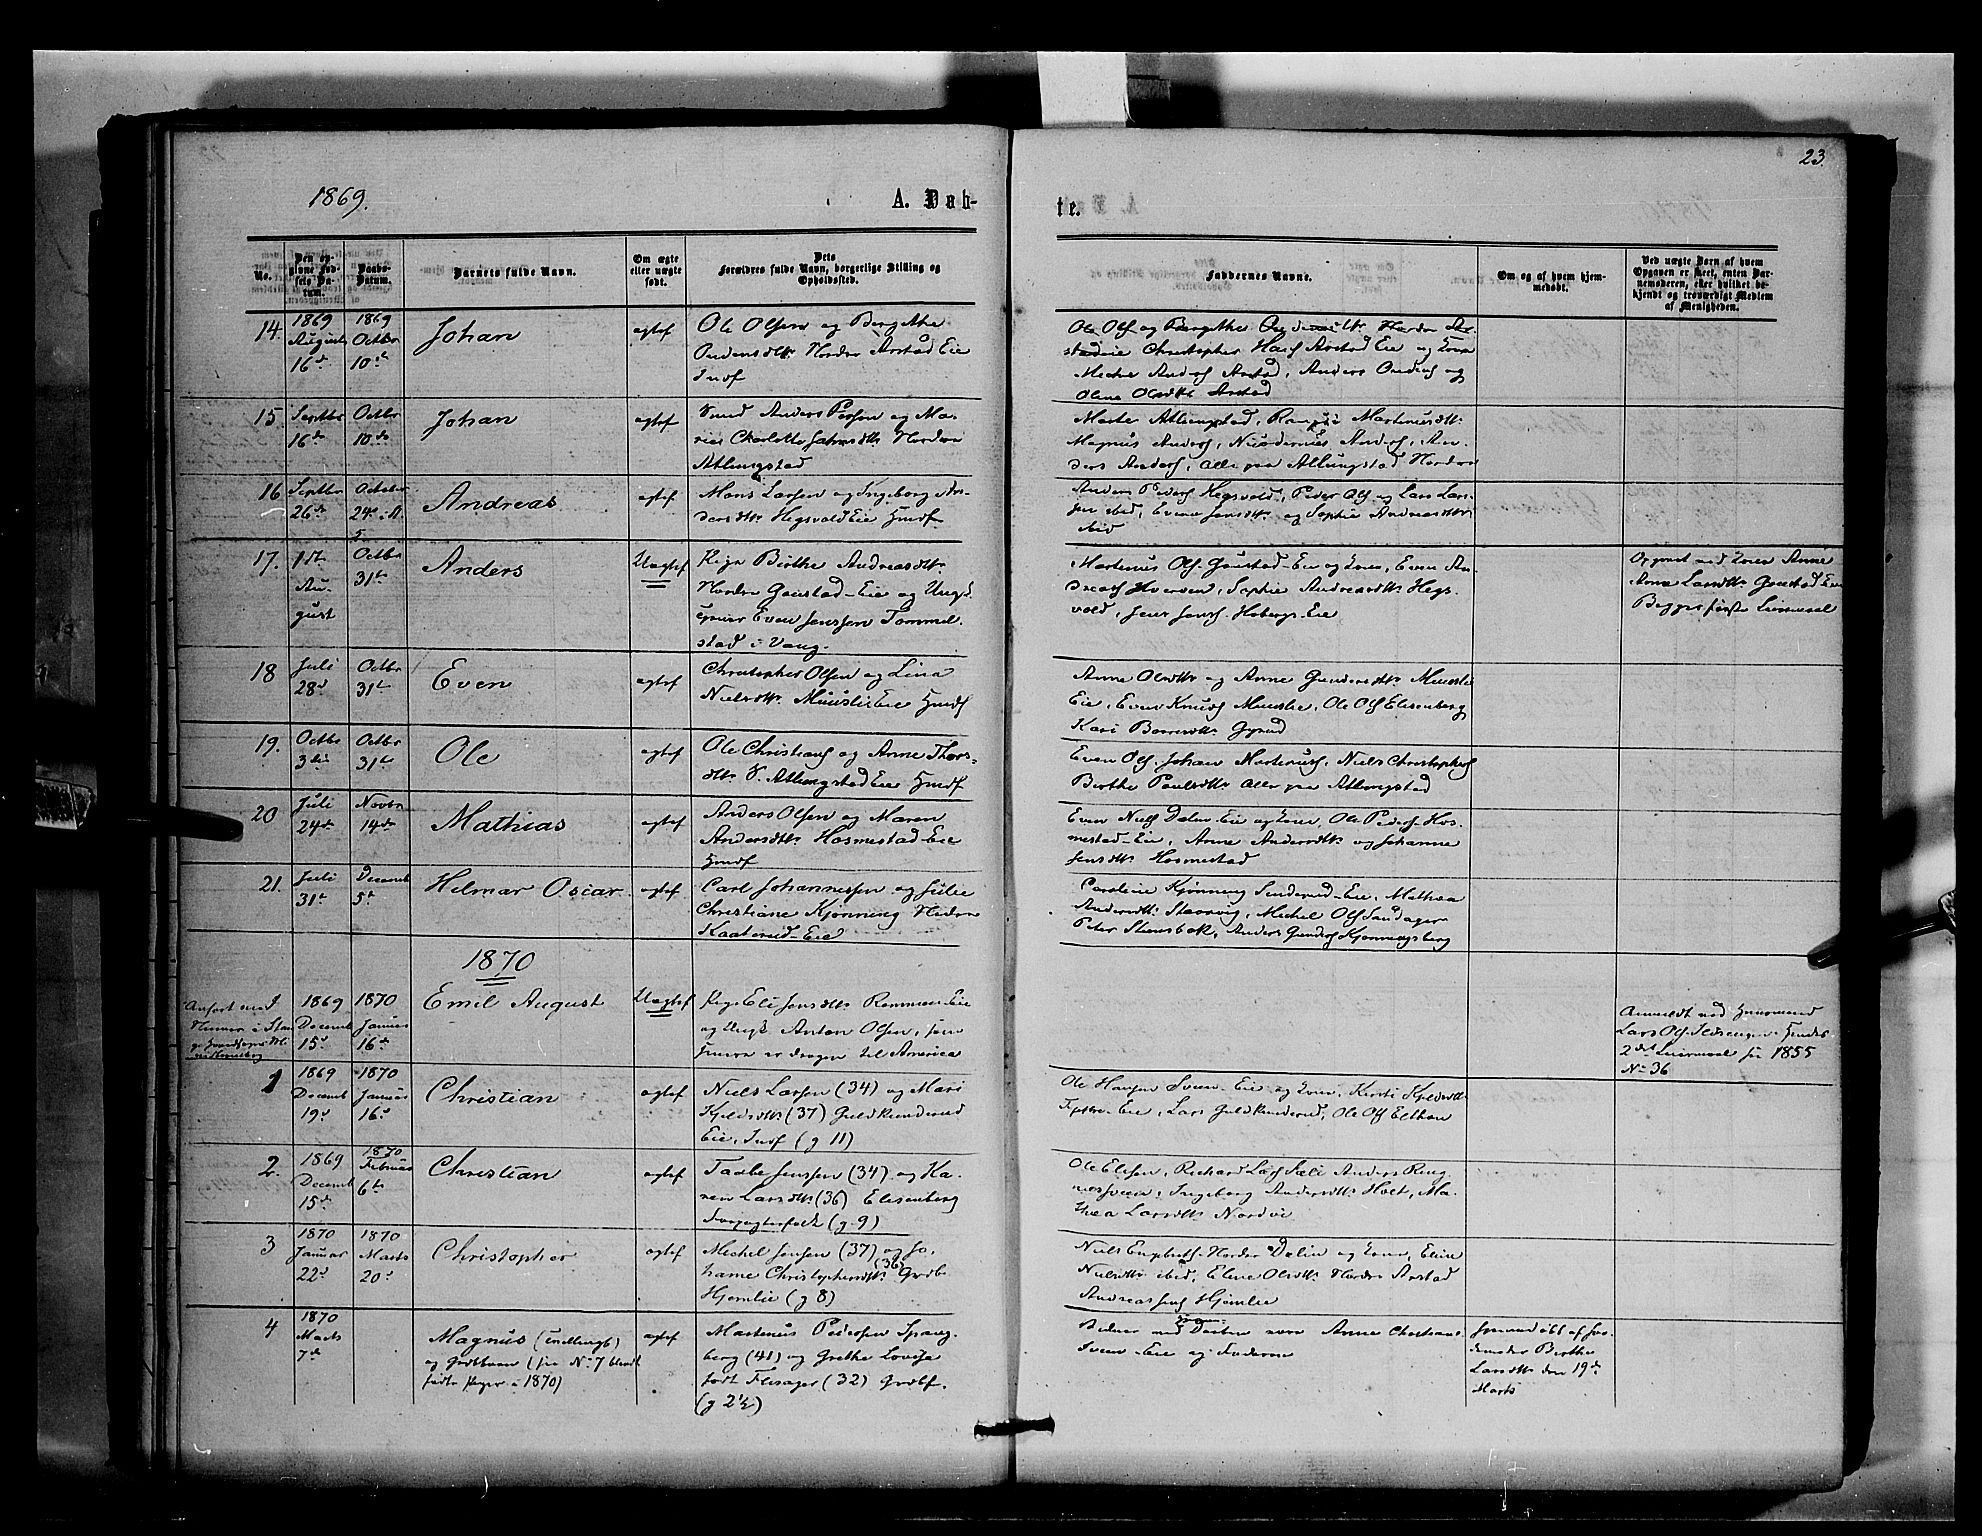 23.
1869.
A. Døb-
te.
No.
Den op-
givne Fød-
sels Da-
tum.
Daabs-
Datum.
Barnets fulde Navn.
Om ægte
eller uægte
født.
Dets
Forældres fulde Navn, borgerlige Stilling og
Opholdssted.
Faddernes Navne.
Om og af hvem hjem-
medøbt.
Ved uægte Børn af hvem
Opgaven er skeet, enten Bar-
nemoderen, eller hvilket be-
kjendt og troværdigt Medlem
af Menigheden.
14. 1869 August 16d 1869 Octbr 10de Johan ægtef
Ole Olsen og Bergithe
Nordre Arstad Eie
Indf
Ole Ols og Bergithe Nordre Ar-
stadeie Christopher Arstad Eie og Kone
Anders Arstad, Anders og
Olene Olsdtr Arstad
15. Septbr 16de Octbr 10de Johan ægtef
Smed Anders Persen og Ma-
rie Charlotte Nordre
Atlungstad
Marte Atlungstad, Martinusdtr
Magnus Anders, Anders, An-
ders Anders, alle paa Atlungstad Nordre
16 Septbr 26de October 24de Andreas ægtef
Mons Larsen og Ingeborg An-
dersdtr Hegsvold Eie Husf
Anders Peders Hegsvold, Peder Ols og Lars Lar-
sen ibid, Jensdtr og Sophie Andreasdtr
ibid
17. 1ste August Octbr 31te Anders Uægtef
Pige Birthe Andreasdtr
Nordre Gaustad-Eie og Ungk.
Even Jenssen Tommel-
stad i Vang.
Martinus Ols Gaustad-Eie og Kone, Even An-
dreas Sophie Andreasdtr Hegs-
vold, Jens Jens Hoberg-Eie
Opgivet ved Kone Anne
Anne Larsdtr Gaustad-Eie
Begges første Leiermaal
18 Juli 28de Octbr 31te Even ægtef
Christopher Olsen og Lina
Nielsdtr Eie Husf
Anne Olsdtr og Anne Gundersdtr
Eie, Even Knuds Ole Ols Elisenberg
Kari
19. Octbr 3die Octbr 31te Ole ægtef
Ole Christians og Anne Thors-
dtr S. Atlungstad Eie Husf
Even Ols, Johan Martinus, Niels Christophers
Berthe Paulsdtr alle paa Atlungstad
20 Juli 24de Novbr 14de Mathias ægtef
Anders Olsen og Maren
Andersdtr Hosmestad-Eie
Husf
Even Niels Dalen-Eie og Kone, Ole Peders Hos-
mestad-Eie, Anne Andersdtr og Johanne
Jensdtr Hosmestad
21. Juli 31te Decemb 5te Hilmar Oscar ægtef
Carl Johannessen og Julie
Christiane Kjønning Nedre
Kaaterud-Eie
Caroline Kjønning Sinderud-Eie, Mathea
Andersdtr Michel Ols Sandager
Peter Stensbak, Anders Gunders Kjønningsberg
1870
Anført med
1869 Decemb 15d 1870 Januar 16de Emil August Uægtef
Pige Eli Jensdtr Rommen-Eie
og Ungk Anton Olsen, som
er dragen til America
Anmeldt ved Huusmand
Lars Ols Hendes
2det Leiermaal se 1855
No 36
1 1869 Decemb 19d 1870 Januar 16d Christian ægtef
Niels Larsen (34) og Mari
Kjeldsdtr (37) Guldkunderud
Eie, Indf (g 11)
Ole Hansen Sveen-Eie og Kone, Kirsti Kjeldsdtr
Eie, Lars Guldkunderud, Ole Ols Elthon
2. 1869 Decemb 15de 1870 Februar 6te Christian ægtef
Jenssen (34) og Ka-
ren Larsdtr (36) Elisenberg
Forpagterfolk (g. 9)
Ole Elisen, Richard Lars Sæli Anders Ring-
Ingeborg Andersdtr Holt, Ma-
thea Larsdtr Nordvi
3 1870 Januar 22d 1870 Marts 20d Christopher ægtef
Michel Jensen (37) og Jo-
hanne Christophersdtr (36) Grdb.
Hjemlie (g 8)
Niels Engebrets Nordre Dalin og Kone, Eline
Nielsdtr ibid, Eline Olsdtr Nordre Arstad
Andreas Jens Hjemlie
4 1870 Marts 7de
Magnus (Tvilling)
og Grdb (se No 7 blandt
fødte Piger i 1870)
ægtef
Martinus Pedersen Spang-
berg (41) og Grethe Lovise
født Flisager (32) Grdbf.
(g 2½)
Daaben vare Anne
Sveen-Eie og Faderen
Hjemmedøbt af Jor-
demoder Birthe
Larsdtr den 19de
Marts